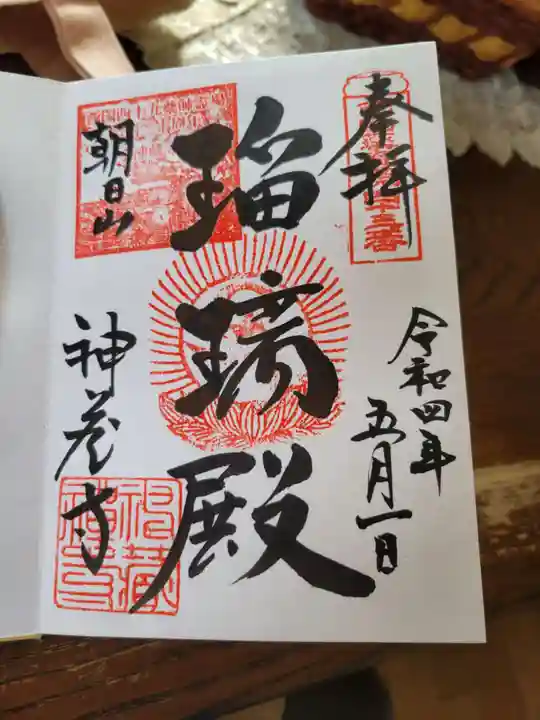 奉拝
令和四年
五月一日
瑠璃殿
朝日山
神蔵寺